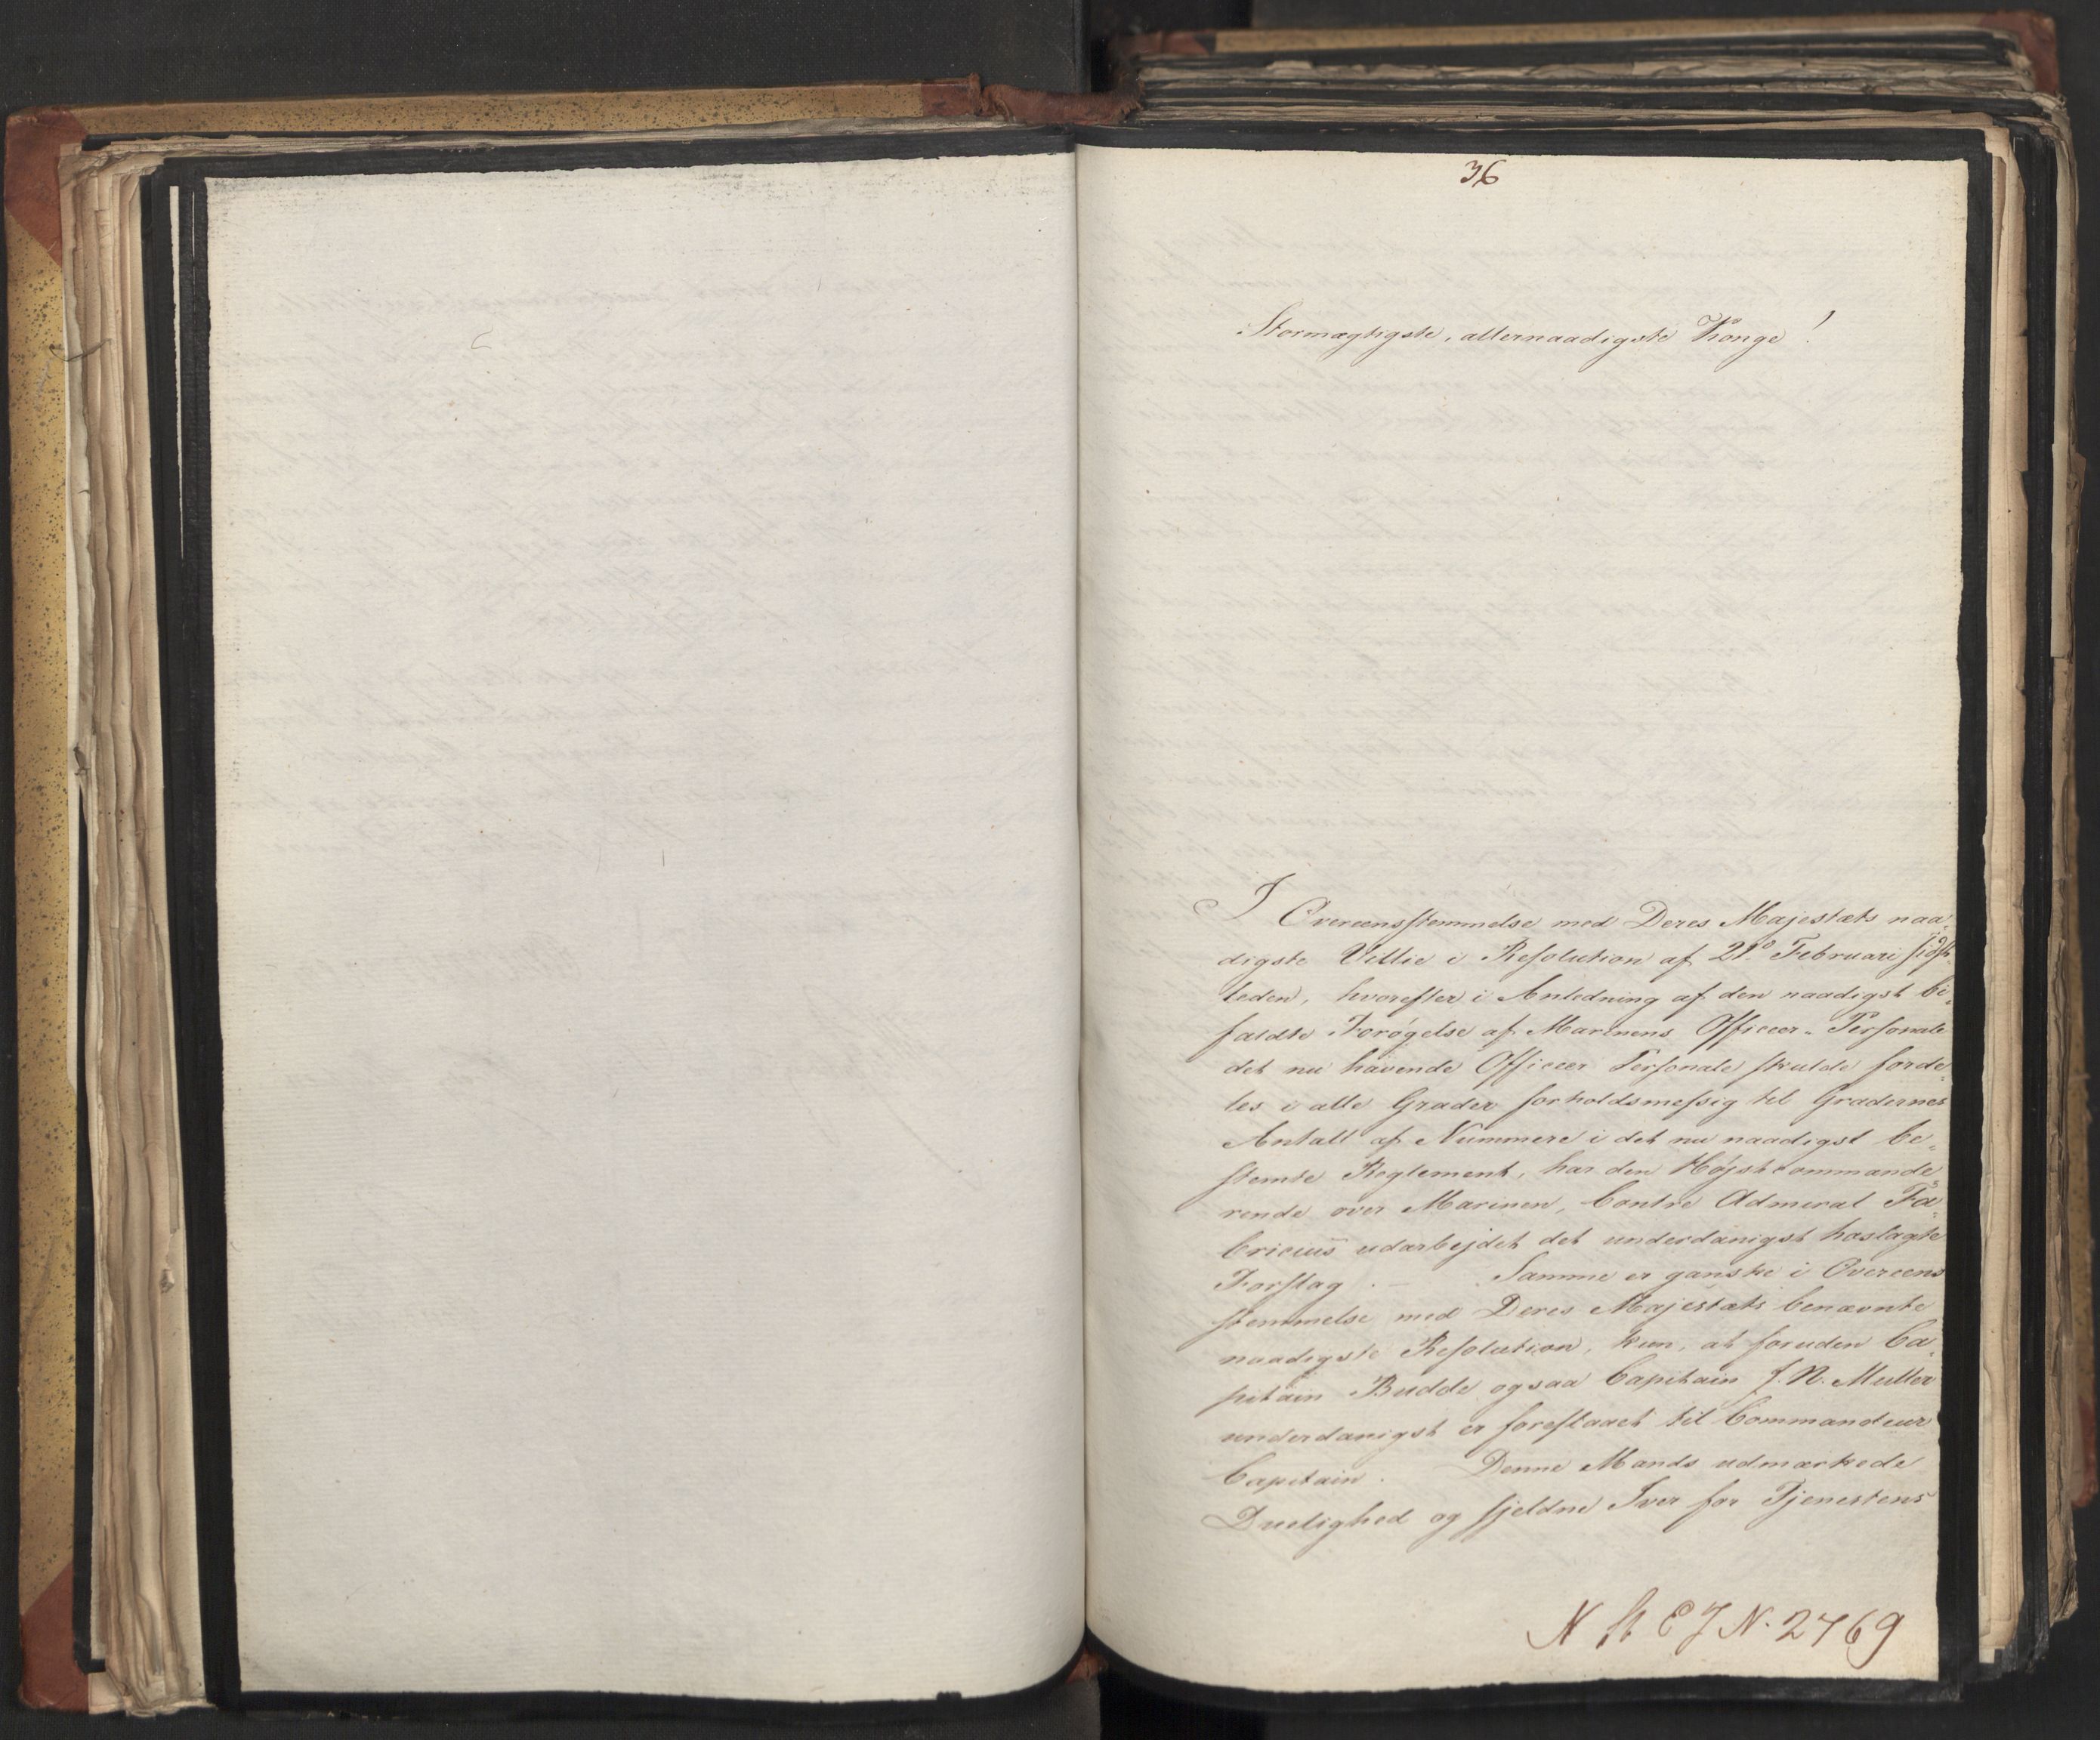 36
Stormægtigste, allernaadigste Konge!
I Overeensstemmelse med Deres Majestæts naa„
digste Villie i Resolution af 21d Februari sidst„
leden, hvorefter i Anledning af den naadigst bi„
faldte Forøgelse af Marinens Officeer„ Personale
det nu havende Officeer Personale skulde forde„
les i alle Grader forholdsmessig til Gradernes
Antall af Nummere i det nu naadigst be„
stemte Reglement, har den Højstcommande„
rende over Marinen, Contre Admiral Fa„
bricius udarbejdet det underdanigst hoslagte
Forslag. — Samme er ganske i Overeens
stemmelse med Deres Majestæts benævnte
naadigste Resolution, kun, at foruden Ca„
pitain Budde ogsaa Capitain J. N. Müller
underdanigst er foreslaaet til Commandeur
Capitain. Denne Mands udmærkede
Duelighed og sjeldne Iver for Tjenestens
N St E J N. 2769